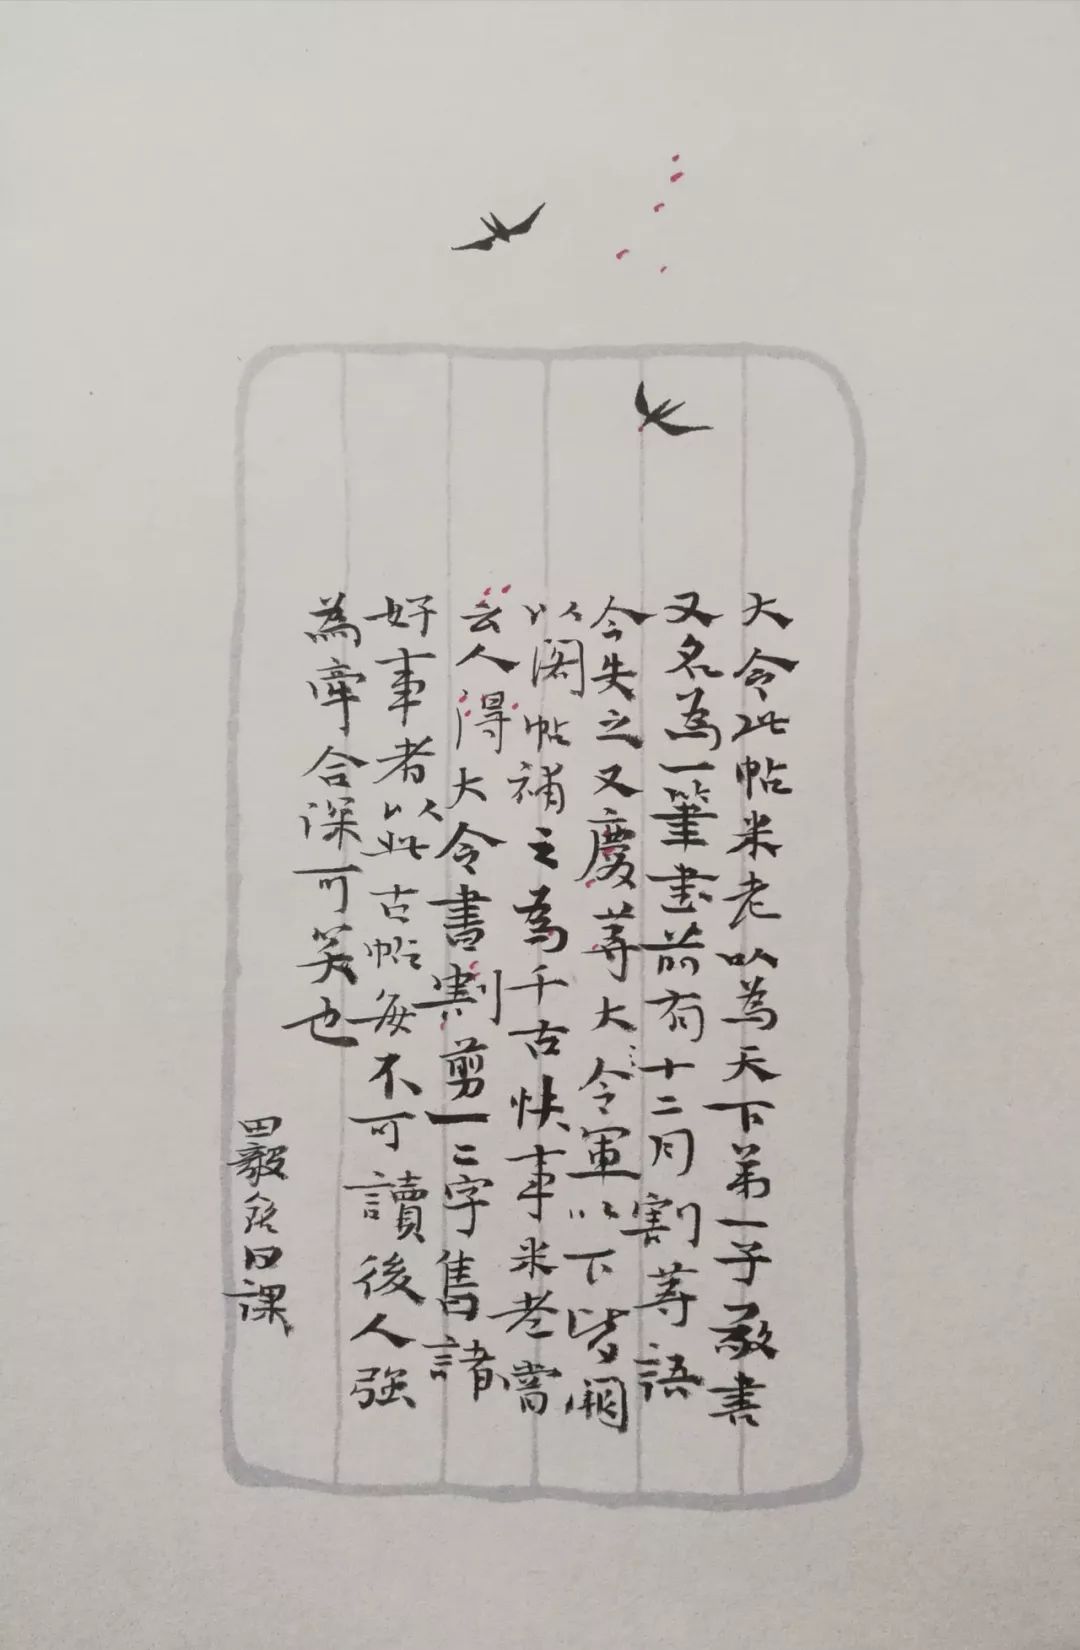 大令此帖米老以為天下第一子敬書
又名為一筆書前有十二月割等語
今失之又慶等大令軍以下皆闕
以閣帖補之為千古快事米老嘗
云人得大令書割剪一二字售諸
好事者以此古帖每不可讀後人強
為牽合深可笑也
田毅铭日課